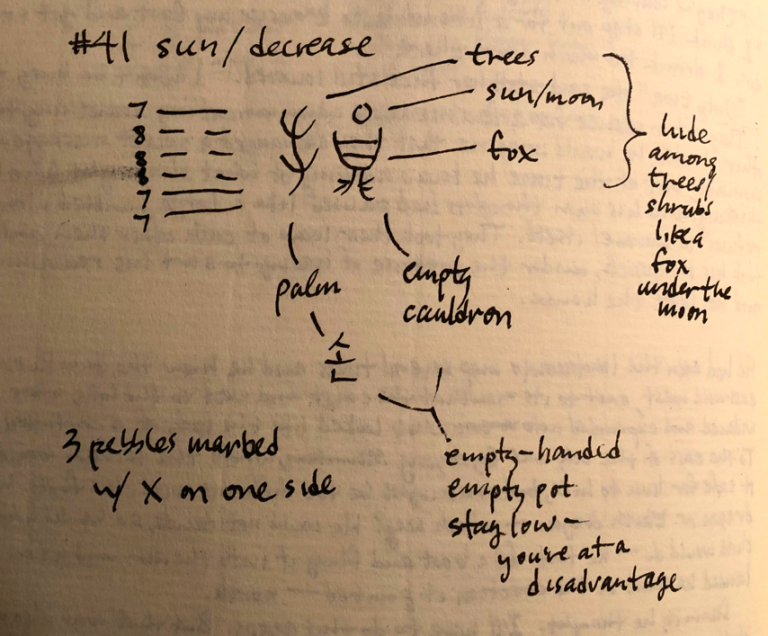 #41 sun/decrease
trees
sun/moon
fox
7
8
8
8
7
7
hide
among
trees/
shrubs
like a
fox
under the
moon
palm
empty
cauldron
손
3 pebbles marked
w/ X on one side
empty-handed
empty pot
stay low -
you're at a
disadvantage